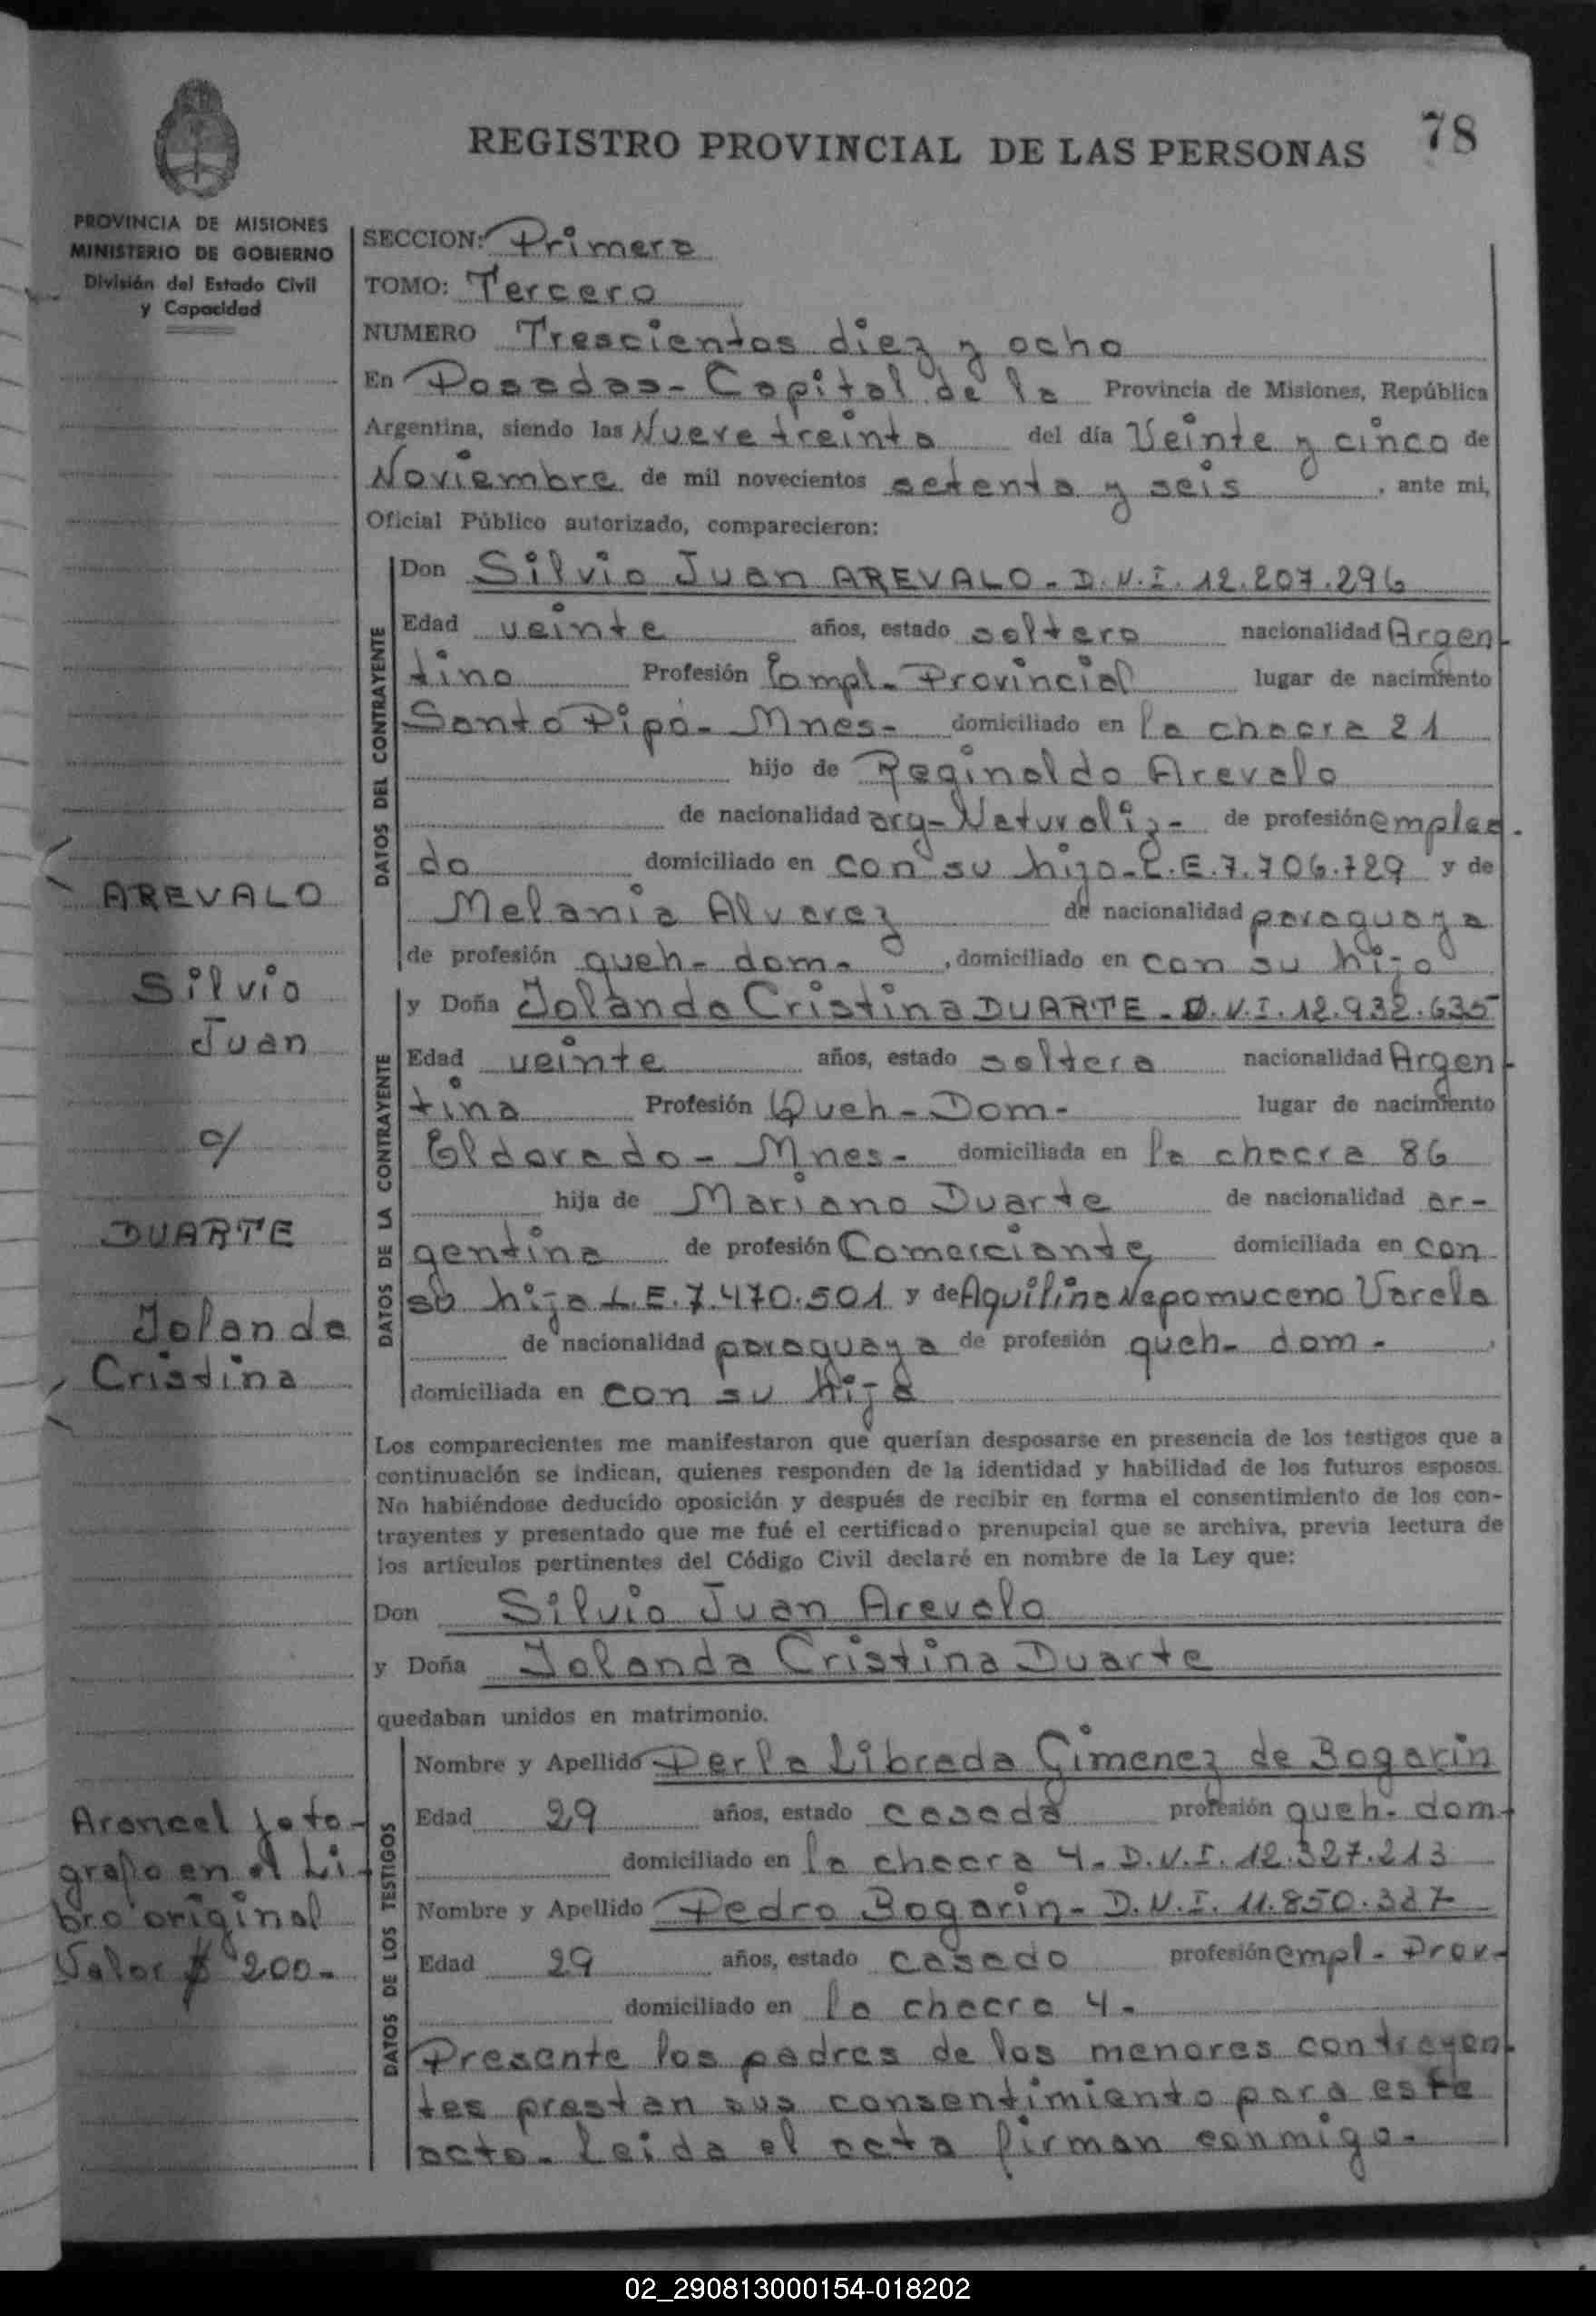 REGISTRO PROVINCIAL DE LAS PERSONAS 78
PROVINCIA DE MISIONES
MINISTERIO DE GOBIERNO
División del Estado Civil
y Capacidad
SECCION: Primera
TOMO: Tercero
NUMERO Trescientos diez y ocho
En Posadas - Capital de la Provincia de Misiones, República
Argentina, siendo las Nueve treinta del día Veinte y cinco de
Noviembre de mil novecientos setenta y seis, ante mi,
Oficial Público autorizado, comparecieron:
DATOS DEL CONTRAYENTE
Don Silvio Juan AREVALO - D.N.I. 12.207.296
Edad veinte años, estado soltero nacionalidad Argen-
tino Profesión Empl- Provincial lugar de nacimiento
Santo Pipó - Mnes - domiciliado en la chacra 21
hijo de Reginaldo Arevalo
de nacionalidad arg- Naturaliz- de profesión emplea-
do domiciliado en con su hijo - L.E. 7.706.729 y de
Melania Alvarez de nacionalidad paraguaya
de profesión queh- dom-, domiciliado en con su hijo
DATOS DE LA CONTRAYENTE
y Doña Jolanda Cristina DUARTE - D.N.I. 12.932.635
Edad veinte años, estado soltera nacionalidad Argen-
tina Profesión Queh- Dom- lugar de nacimiento
Eldorado - Mnes - domiciliada en la chacra 86
hija de Mariano Duarte de nacionalidad ar-
gentina de profesión Comerciante domiciliada en con
su hija L.E. 7.470.501 y de Aquilina Nepomuceno Varela
de nacionalidad paraguaya de profesión queh- dom-,
domiciliada en con su hija
Los comparecientes me manifestaron que querían desposarse en presencia de los testigos que a
continuación se indican, quienes responden de la identidad y habilidad de los futuros esposos.
No habiéndose deducido oposición y después de recibir en forma el consentimiento de los con-
trayentes y presentado que me fué el certificado prenupcial que se archiva, previa lectura de
los artículos pertinentes del Código Civil declaré en nombre de la Ley que:
Don Silvio Juan Arevalo
y Doña Jolanda Cristina Duarte
quedaban unidos en matrimonio.
DATOS DE LOS TESTIGOS
Nombre y Apellido Perla Librada Gimenez de Bogarin
Edad 29 años, estado casada profesión queh- dom-
domiciliado en la chacra 4 - D.N.I. 12.327.213
Nombre y Apellido Pedro Bogarin - D.N.I. 11.850.327
Edad 29 años, estado casado profesión empl- Prov-
domiciliado en la chacra 4 -
Presente los padres de los menores contrayen-
tes prestan sus consentimiento para este
acto - Leida el acta firman conmigo -
AREVALO
Silvio
Juan
c/
DUARTE
Jolanda
Cristina
Arancel foto-
grafo en el Li-
bro original
Valor $ 200-
02_290813000154-018202